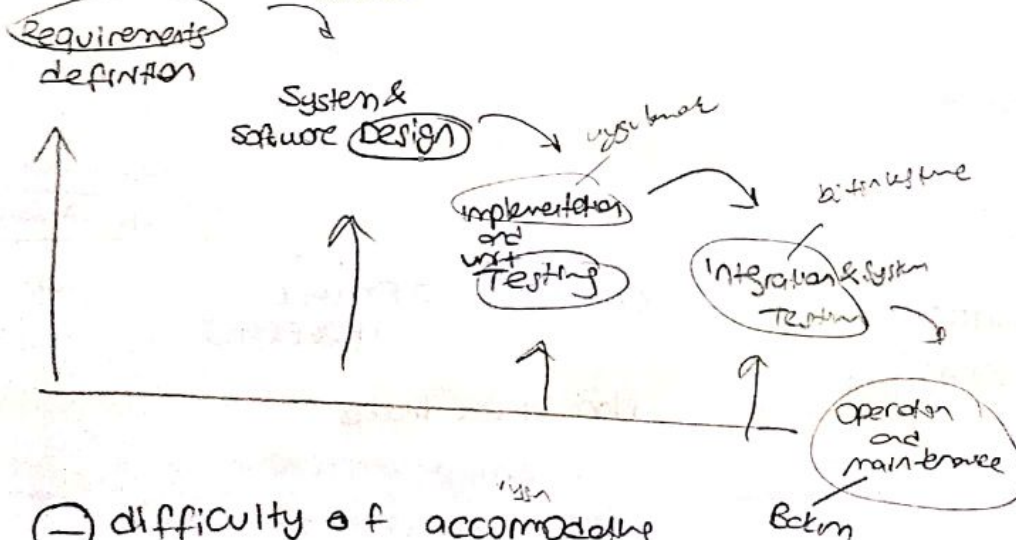 Requirements
definition
System &
Software Design
implementation
and
unit
Testing
Integration & System
Testing
Operation
and
maintenance
Bakım
⊖ difficulty of accomodating